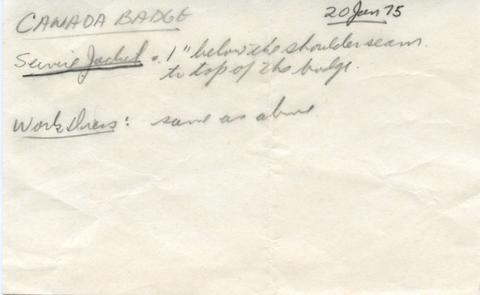 CANADA BADGE
20 Jan 75
Service Jacket. 1" below the shoulder seam.
to top of the badge.
Work dress: same as above